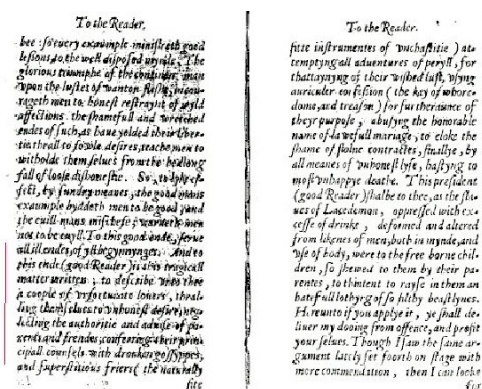 To the Reader.
bee : so euery example ministreth good
lessons, to the well disposed mynde. The
glorious triumphe of the continent man
vpon the lustes of wanton fleshe, incou-
rageth men to honest restraynt of wyld
affections. the shamefull and wretched
endes of such, as haue yelded their liber-
tie thrall to fowle desires, teache men to
witholde them selues from the hedlong
fall of loose dishonestie. So, to lyke ef-
fect, by sundry meanes, the good mans
exaumple byddeth men to be good, and
the euill mans mischefe, warneth men
not to be euyll. To this good ende, serue
all ill endes, of yll begynnynges. And to
this ende (good Reader) is this tragicall
matter written, to describe vnto thee
a coople of vnfortunate louers, thral-
ling themselues to vnhonest desire, neg-
lecting the authoritie and aduise of pa-
rents and frendes, conferring their prin-
cipall counsels with dronken gossyppes,
and superstitious friers ( the naturally
fitte
To the Reader.
fitte instrumentes of vnchastitie ) at-
temptyng all aduentures of peryll, for
thattaynyng of their wished lust, vsyng
auriculer confession ( the key of whore-
dome, and treason ) for furtheraunce of
theyr purpose, abusyng the honorable
name of lawefull mariage, to cloke the
shame of stolne contractes, finallye, by
all meanes of vnhonest lyfe, hastyng to
most vnhappye deathe. This president
(good Reader) shalbe to thee, as the sla-
ues of Lacedemon, oppressed with ex-
cesse of drinke, deformed and altered
from likenes of men, both in mynde, and
vse of body, were to the free borne chil-
dren, so shewed to them by their pa-
rentes, to thintent to rayse in them an
hatefull lothyng of so filthy beastlynes.
Hereunto if you applye it, ye shall de-
liuer my dooing from offence, and profit
your selues. Though I saw the same ar-
gument lately set foorth on stage with
more commendation, then I can looke
for